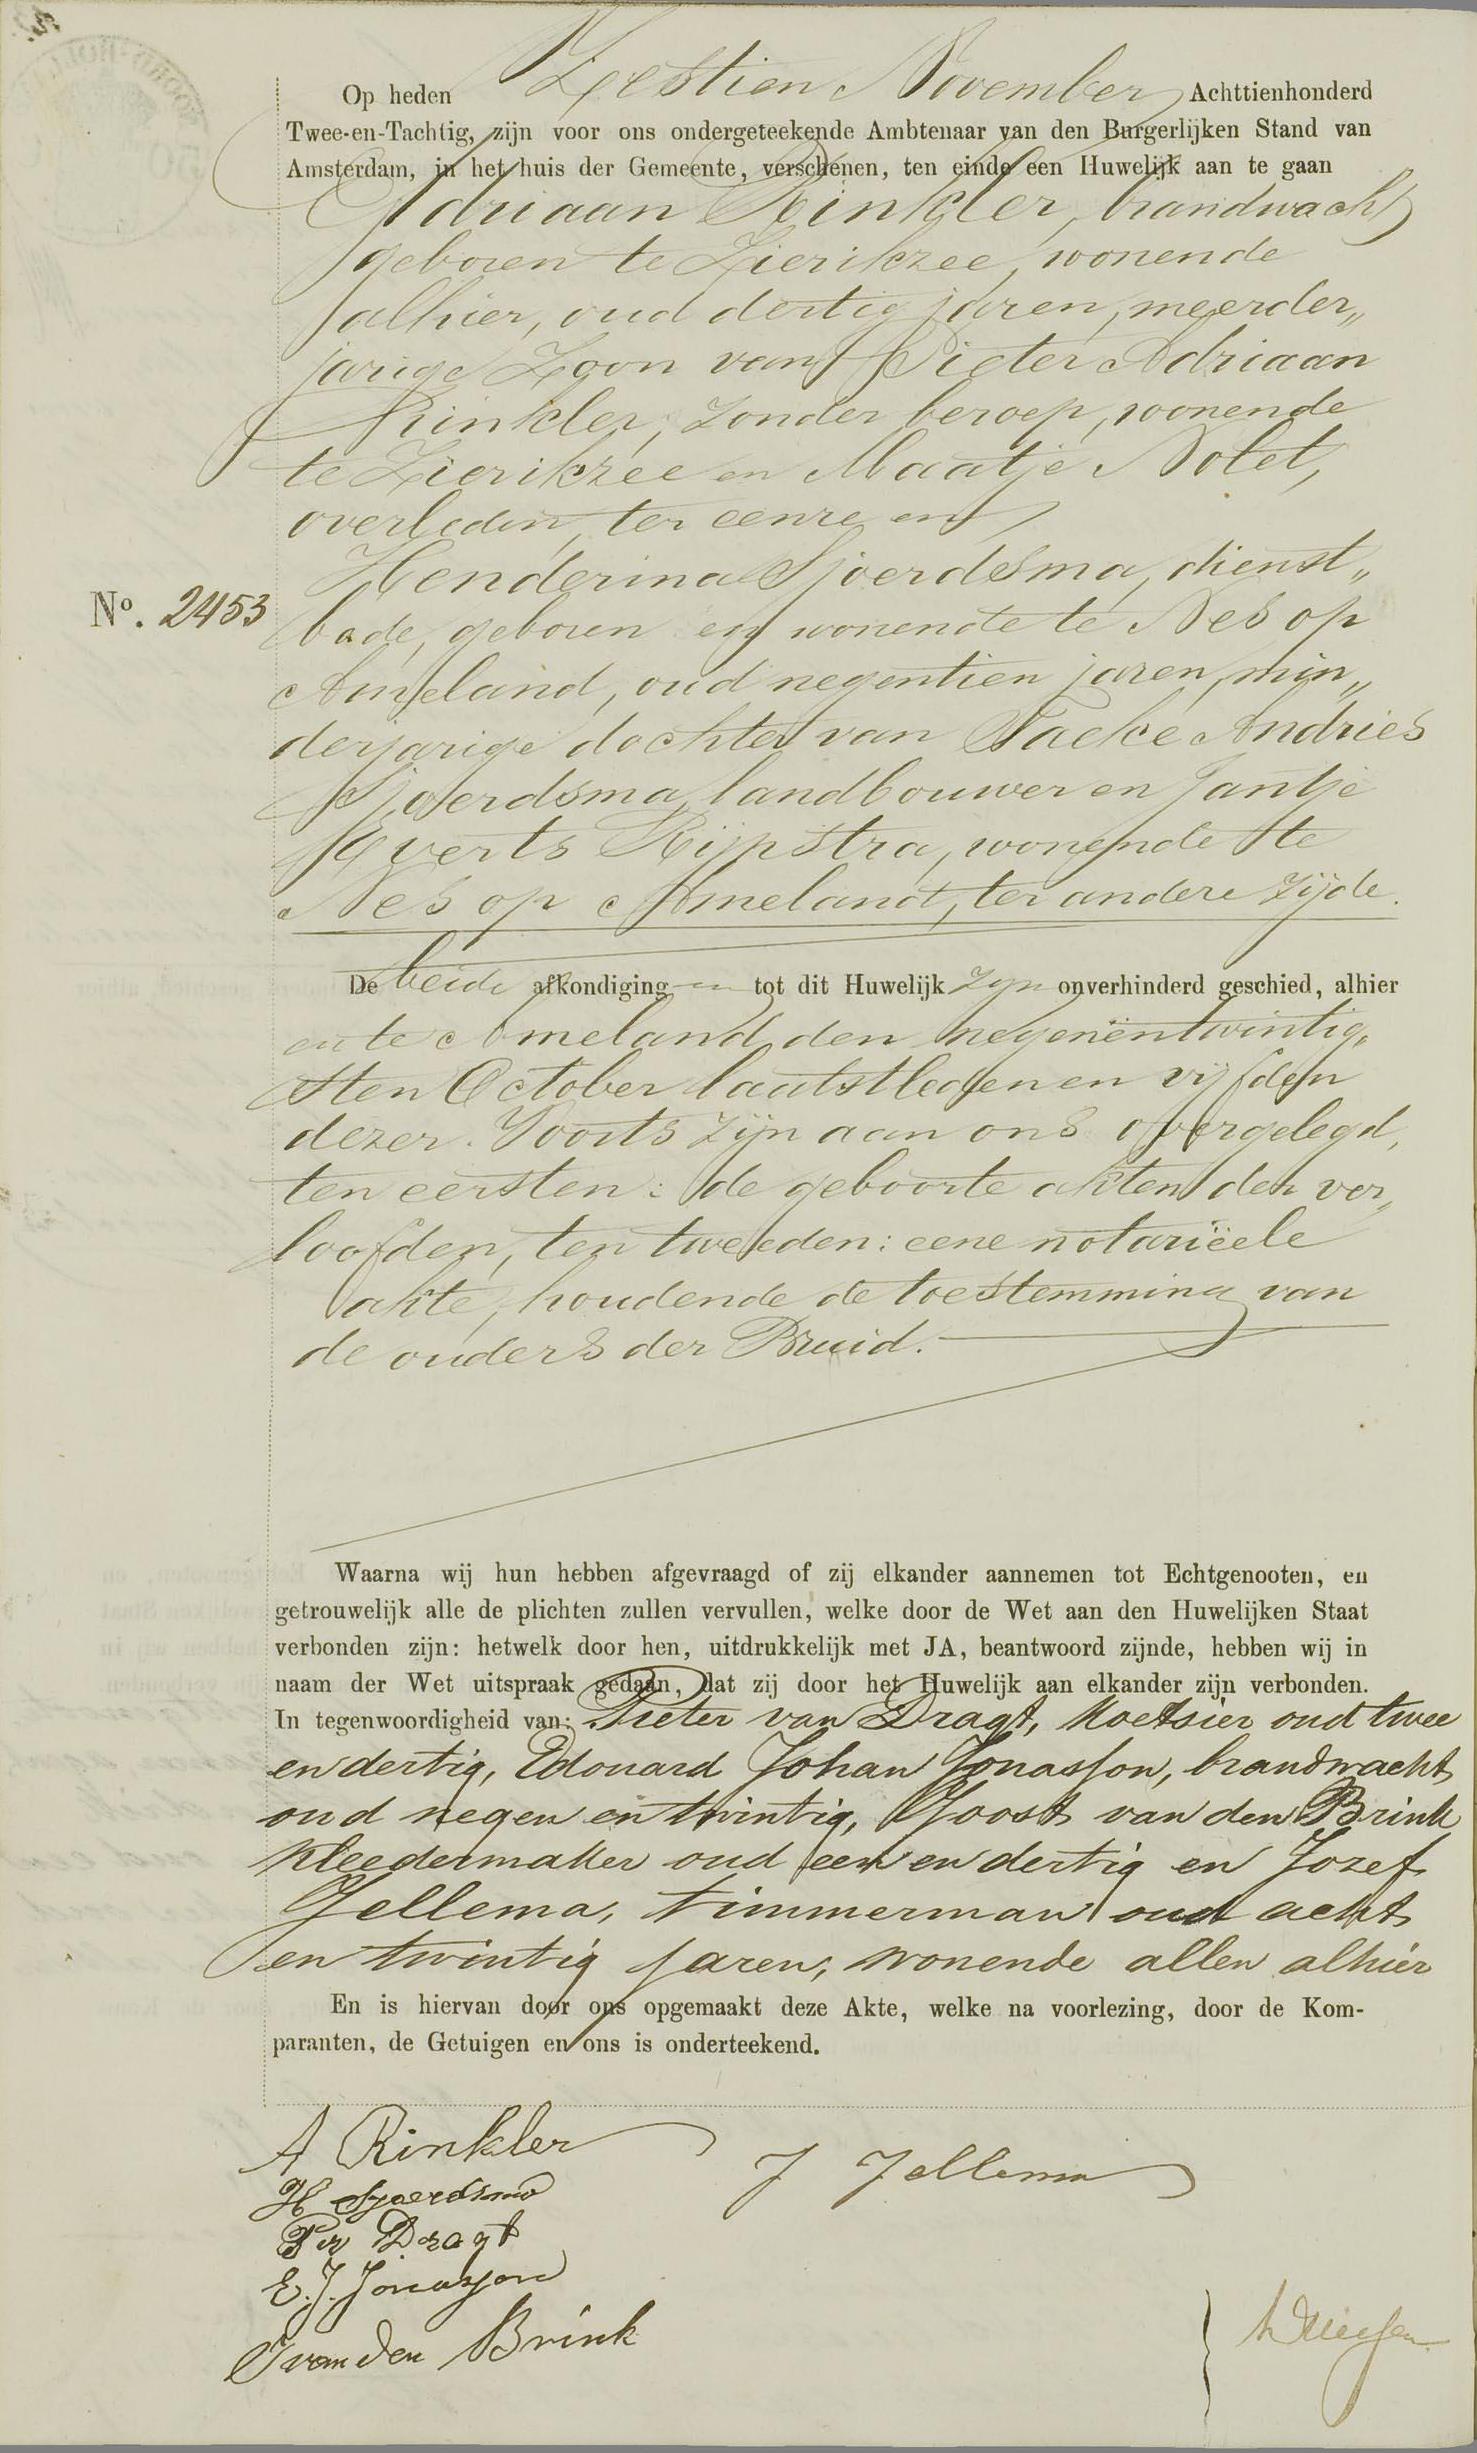 Op heden Zestien November Achttienhonderd
Twee-en-Tachtig, zijn voor ons ondergeteekende Ambtenaar van den Burgerlijken Stand van
Amsterdam, in het huis der Gemeente, verschenen, ten einde een Huwelijk aan te gaan
Adriaan Rinkler, brandwacht
geboren te Zierikzee, wonende
alhier, oud dertig jaren, meerder„
jarige Zoon van Pieter Adriaan
Rinkler, zonder beroep, wonende
te Zierikzee en Maatje Nolet,
overleden, ter eenre en
Henderina Sjoerdsma, dienst„
No. 2453
bode, geboren en wonende te Nes op
Ameland, oud negentien jaren, min„
derjarige dochter van Taeke Andries
Sjoerdsma, landbouwer en Jantje
Everts Rijpstra, wonende te
Nes op Ameland, ter andere zijde.
De beide afkondigingen tot dit Huwelijk zijn onverhinderd geschied, alhier
en te Ameland den negenëntwintig„
sten October laatstleden en vijfden
dezer. Voorts zijn aan ons overgelegd,
ten eersten: de geboorte akten der ver„
loofden, ten tweeden: eene notarieële
akte, houdende de toestemming van
de ouders der Bruid.
Waarna wij hun hebben afgevraagd of zij elkander aannemen tot Echtgenooten, en
getrouwelijk alle de plichten zullen vervullen, welke door de Wet aan den Huwelijken Staat
verbonden zijn: hetwelk door hen, uitdrukkelijk met JA, beantwoord zijnde, hebben wij in
naam der Wet uitspraak gedaan, dat zij door het Huwelijk aan elkander zijn verbonden.
In tegenwoordigheid van: Pieter van Dragt, Koetsier oud twee
en dertig, Edouard Johan Jonasson, brandwacht
oud negen en twintig, Joost van den Brink
Kleedermaker oud een en dertig en Jozef
Jellema, timmerman oud acht
en twintig jaren, wonende allen alhier
En is hiervan door ons opgemaakt deze Akte, welke na voorlezing, door de Kom-
paranten, de Getuigen en ons is onderteekend.
A Rinkler
J Jellema
H Sjoerdsma
Dragt
E. J. Jonasson
J van den Brink